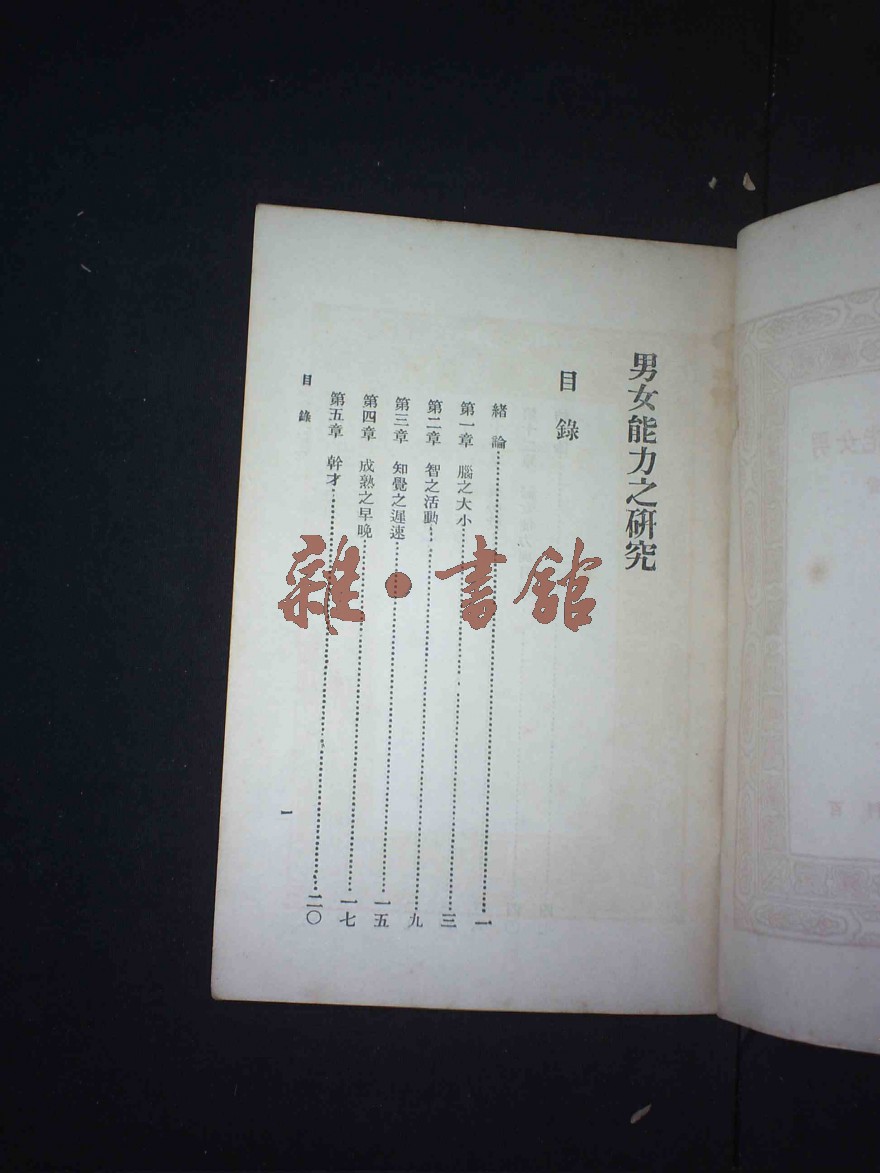 男女能力之研究
目錄
緒論……一
第一章 腦之大小……三
第二章 智之活動……九
第三章 知覺之遲速……一五
第四章 成熟之早晚……一七
第五章 幹才……二〇
目錄
一
雜·書館